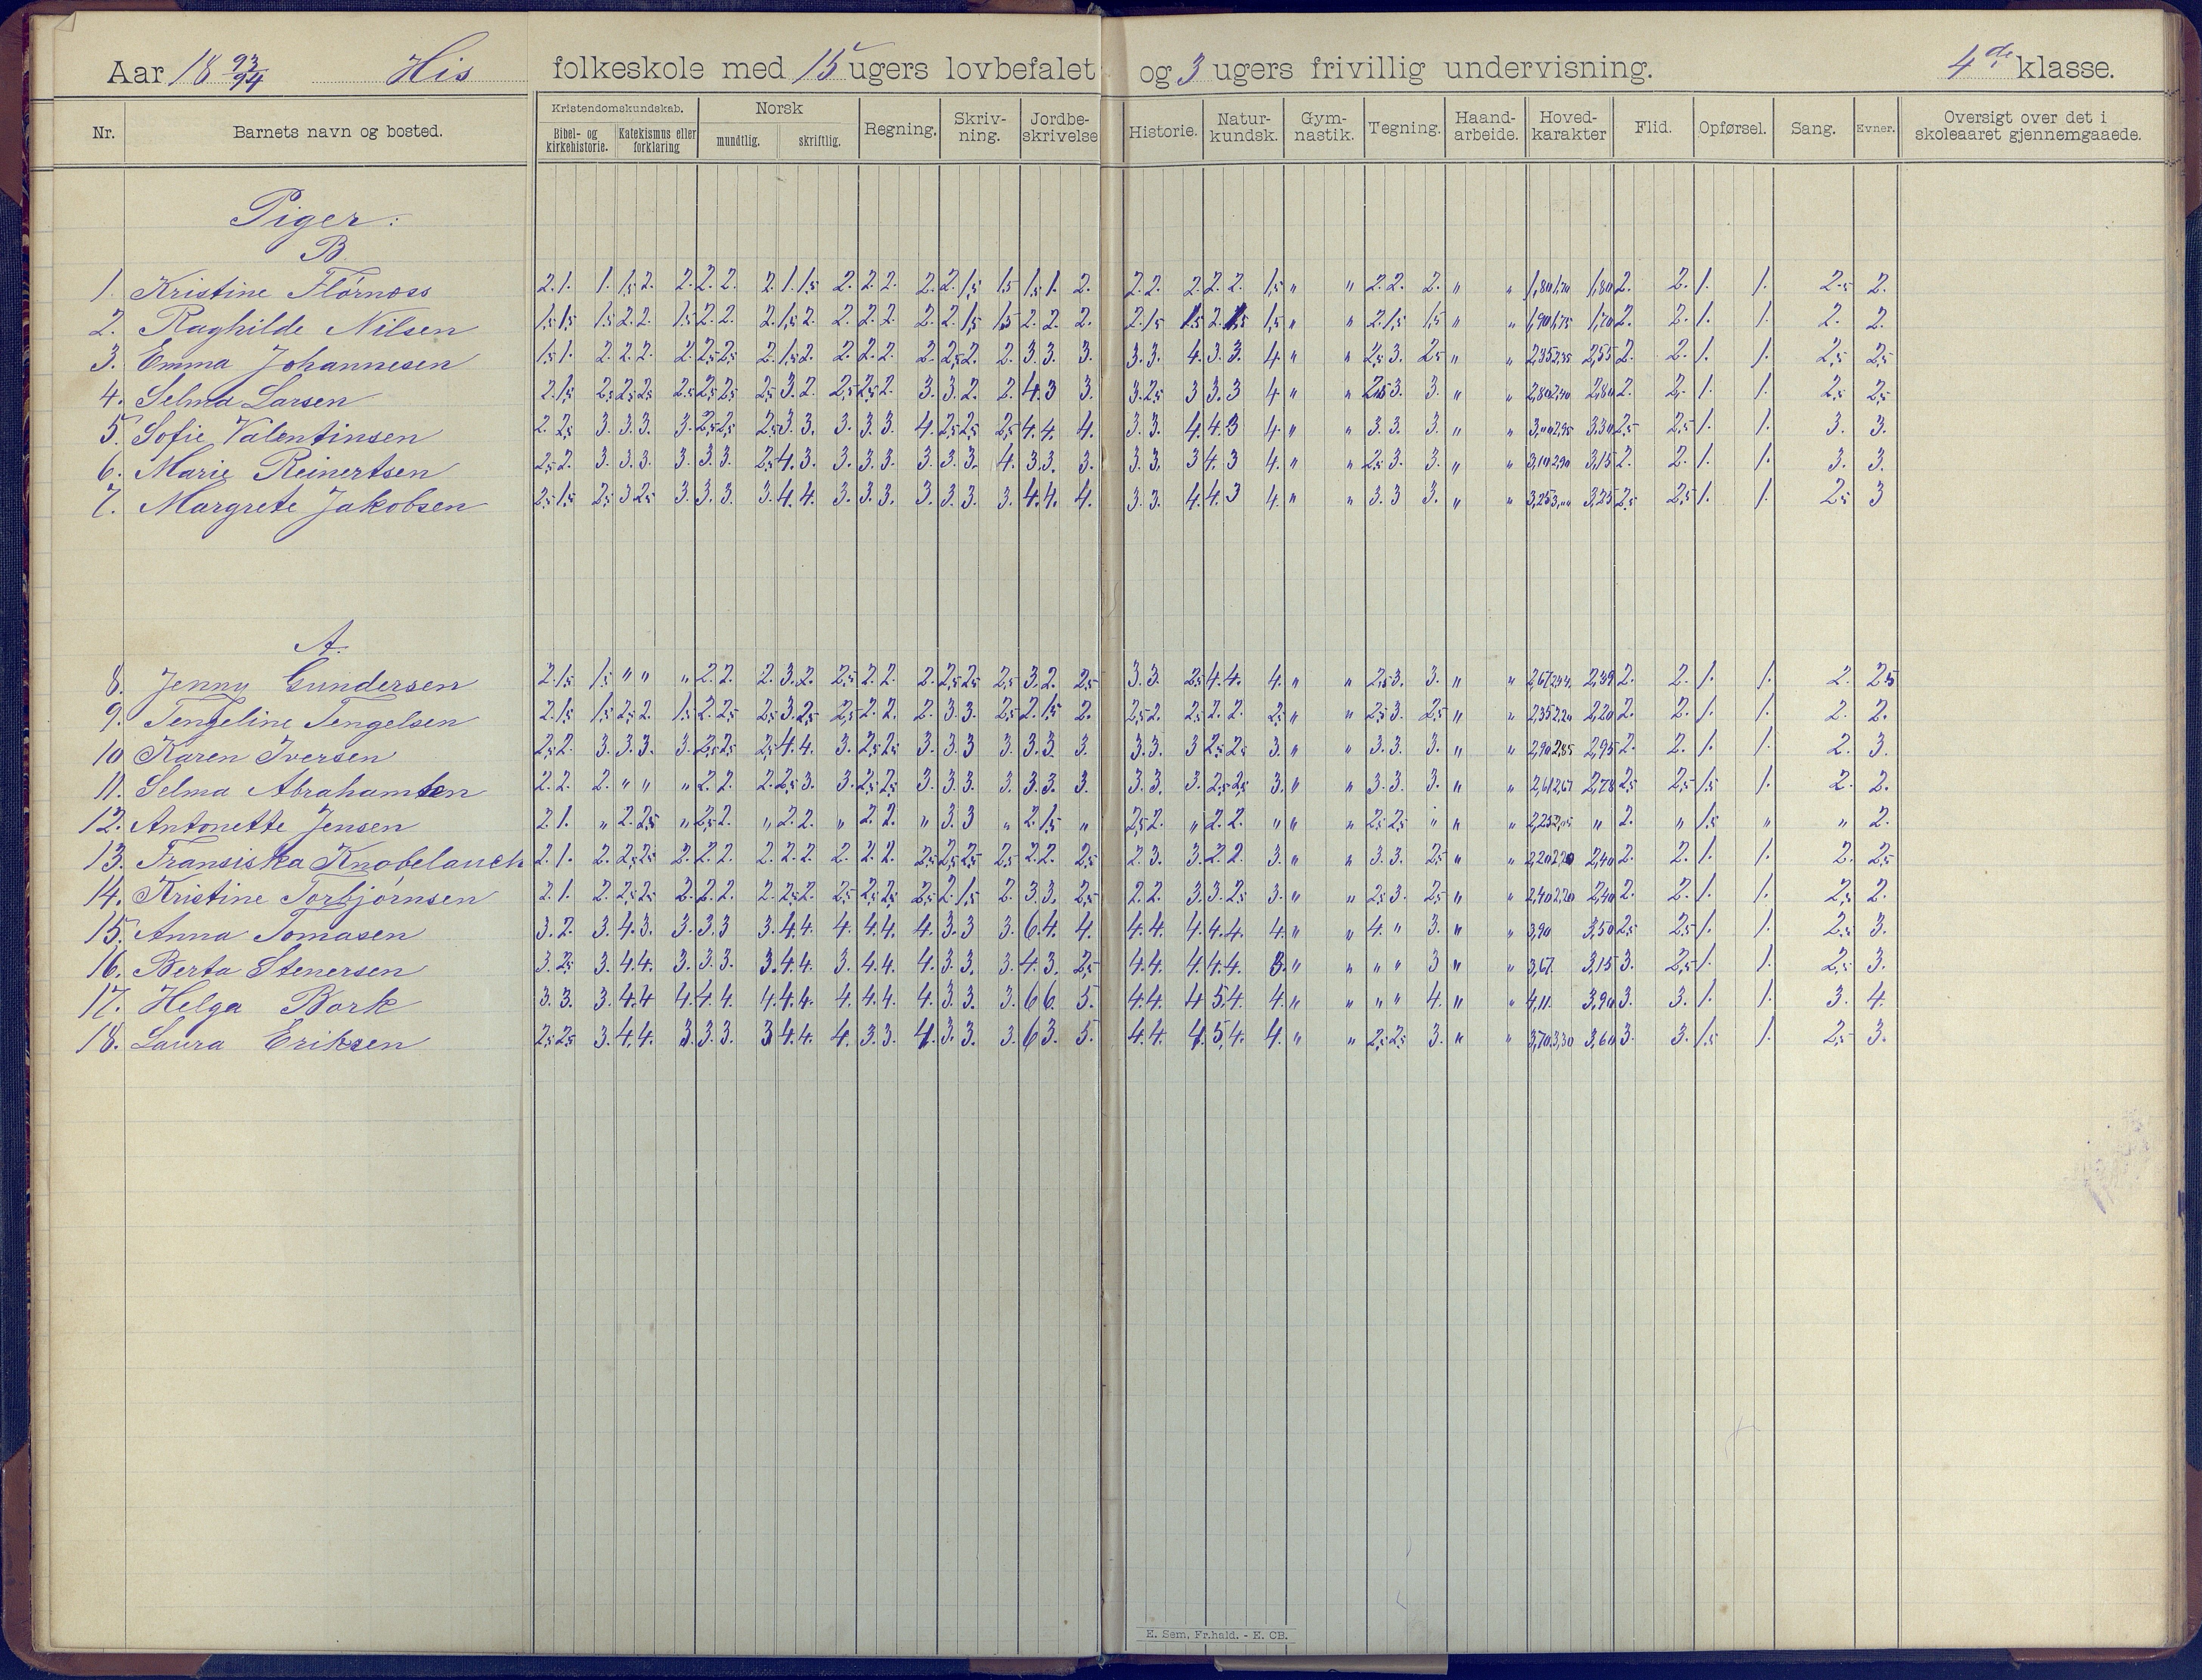 Aar 18 93/94 His folkeskole med 15 ugers lovbefalet og 3 ugers frivillig undervisning. 4de klasse.
Nr. Barnets navn og bosted. Kristendomskundskab. Bibel- og kirkehistorie. Katekismus eller forklaring Norsk mundtlig. skriftlig. Regning. Skriv-ning. Jordbe-skrivelse Historie. Natur-kundsk. Gym-nastik. Tegning. Haand-arbeide. Hoved-karakter Flid. Opførsel. Sang. Evner. Oversigt over det i skoleaaret gjennemgaaede.
Piger:
B.
1. Kristine Flørnæss 2. 1. 1. 1,5 2. 2. 2. 2. 2. 1. 1,5 2. 2. 2. 2. 2. 1,5 1,5 1,5 1. 2. 2. 2. 2. 2. 2. 1,5 " " 2. 2. 2. " " 1,80 1,70 1,80 2. 2. 1. 1. 2,5 2.
2. Raghilde Nilsen 1,5 1,5 1,5 2. 2. 1,5 2. 2. 2. 1,5 2. 2. 2. 2. 2. 2. 1,5 1,5 2. 2. 2. 2. 1,5 1,5 2. 1,5 1,5 " " 2. 1,5 1,5 " " 1,90 1,75 1,70 2. 2. 1. 1. 2. 2.
3. Emma Johannesen 1,5 1. 2. 2. 2. 2. 2,5 2,5 2. 1,5 2. 2. 2. 2. 2. 2,5 2. 2. 3. 3. 3. 3. 3. 4. 3. 3. 4. " " 2,5 3. 2,5 " " 2,35 2,35 2,55 2. 2. 1. 1. 2,5 2,5
4. Selma Larsen 2. 1,5 2,5 2,5 2,5 2,5 2,5 2,5 2,5 3. 2. 2,5 2,5 2. 3. 3. 2. 2. 4. 3 3. 3. 2,5 3 3. 3 4 " " 2,5 3 3. " " 2,80 2,40 2,80 2. 2. 1. 1. 2,5 2,5
5. Sofie Valentinsen 2. 2,5 3. 3. 3. 3. 2,5 2,5 2,5 3. 3. 3. 3. 3. 4. 2,5 2,5 2,5 4. 4. 4. 3. 3. 4. 4. 3 4. " " 3. 3. 3. " " 3,00 2,95 3,30 2,5 2,5 1. 1. 3. 3.
6. Marie Reinertsen 2,5 2. 3. 3. 3. 3. 3. 3. 2,5 4. 3. 3. 3. 3. 3. 3. 3. 4. 3. 3. 3. 3. 3. 3 4. 3 4. " " 2,5 3. 3. " " 3,10 2,90 3,15 2. 2. 1. 1. 3. 3.
7. Margrete Jakobsen 2,5 1,5 2,5 3 2,5 3. 3. 3. 3. 4. 4. 3. 3. 3. 3. 3. 3. 3. 4. 4. 4. 3. 3. 4. 4. 3 4. " " 3. 3 3. " " 3,25 3,00 3,25 2,5 2,5 1. 1. 2,5 3
A.
8. Jenny Gundersen 2. 1,5 1,5 " " " 2. 2. 2. 3. 2. 2,5 2. 2. 2. 2,5 2,5 2,5 3. 2. 2,5 3. 3. 2,5 4. 4. 4. " " 2,5 3. 3. " " 2,67 2,44 2,39 2. 2. 1. 1. 2. 2,5
9. Tengeline Tengelsen 2. 1,5 1,5 2,5 2. 1,5 2. 2,5 2,5 3. 2,5 2,5 2. 2. 2. 3. 3. 2,5 2. 1,5 2. 2,5 2. 2,5 2. 2. 2,5 " " 2,5 3. 2,5 " " 2,35 2,20 2,20 2. 2. 1. 1. 2. 2.
10 Karen Iversen 2,5 2. 3. 3. 3. 3. 2,5 2,5 2,5 4. 4. 3. 2,5 2,5 3. 3. 3 3. 3. 3. 3. 3. 3. 3 2,5 2,5 3. " " 3. 3. 3. " " 2,90 2,85 2,95 2. 2. 1. 1. 2. 3.
11. Selma Abrahamsen 2. 2. 2. " " " 2. 2. 2. 2,5 3. 3. 2,5 2,5 3. 3. 3. 3. 3. 3. 3. 3. 3. 3. 2,5 2,5 3. " " 3. 3. 3. " " 2,61 2,67 2,78 2,5 2,5 1,5 1. 2. 2.
12. Antonette Jensen 2. 1. " 2. 2,5 " 2,5 2. " 2. 2. " 2. 2. " 3. 3 " 2. 1,5 " 2,5 2. " 2. 2. " " " 2,5 2,5 " " " 2,25 2,05 " 2. " 1,5 " " 2.
13. Fransiska Knobelauch 2. 1. 2. 2,5 2,5 2. 2. 2. 2. 2. 2. 2. 2. 2. 2,5 2,5 2,5 2,5 2. 2. 2,5 2. 3. 3. 2. 2. 3. " " 3. 3. 2,5 " " 2,20 2,20 2,40 2. 2. 1. 1. 2. 2,5
14. Kristine Torbjørnsen 2. 1. 2. 2,5 2,5 2. 2. 2. 2. 2,5 2. 2,5 2,5 2,5 2,5 2. 1,5 2. 3. 3. 2,5 2. 2. 3. 3. 2,5 3. " " 2,5 3. 2,5 " " 2,40 2,20 2,40 2. 2. 1. 1. 2,5 2.
15. Anna Tomasen 3. 2. 3. 4. 3. 3. 3. 3 3. 4. 4. 4. 4. 4. 4. 3. 3 3. 6. 4. 4. 4. 4. 4. 4. 4. 4. " " 4. " 3. " " 3,90 3,50 2,5 2,5 1. 1. 2,5 3.
16. Berta Stenersen 3. 2,5 3. 4. 4. 3. 3. 3. 3. 4. 4. 3. 4. 4. 4. 3. 3. 3. 4. 3. 2,5 4. 4. 4. 4. 4. 3. " " " " 3 " " 3,67 3,15 3. 2,5 1. 1. 2,5 3.
17. Helga Bork 3. 3. 3. 4. 4 4. 4. 4. 4. 4. 4. 4. 4. 4. 4. 3. 3. 3. 6 6. 5. 4. 4. 4 5. 4. 4. " " " " 4. " " 4,11 3,90 3. 3. 1. 1. 3. 4.
18. Laura Eriksen 2,5 2,5 3. 4. 4. 3. 3. 3. 3 4. 4. 4. 3. 3. 4. 3. 3. 3. 6 3. 5. 4. 4. 4. 5. 4. 4. " " 2,5 2,5 3. " " 3,70 3,30 3,60 3. 3. 1,5 1. 2,5 3.
E. Sem, Fr.hald. - E. CB.